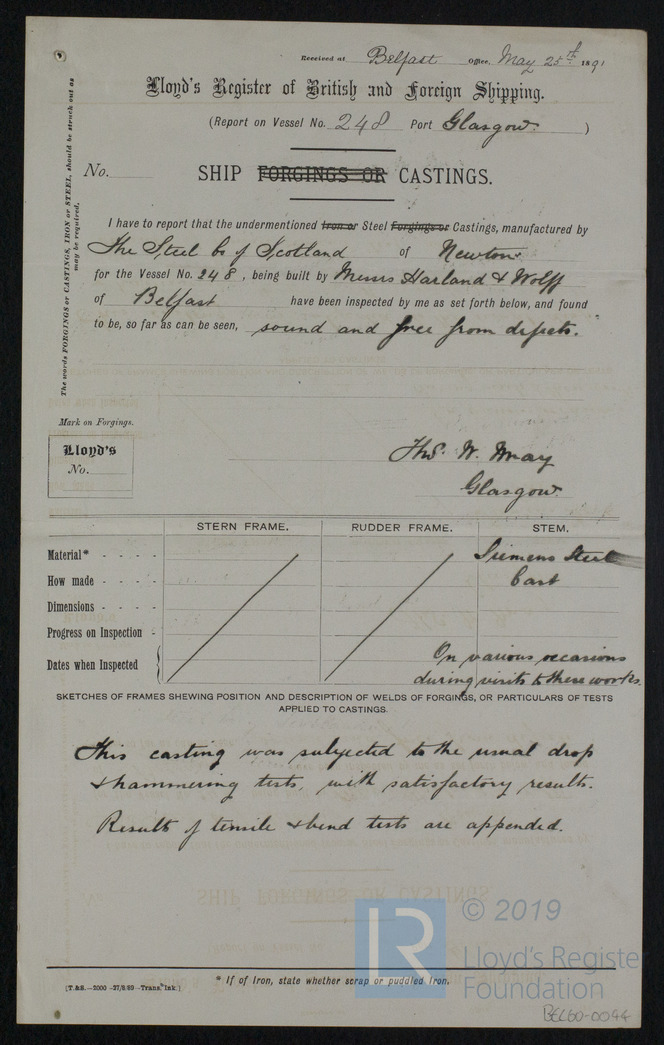 Received at Belfast Office, May 25th 1891
Lloyd's Register of British and Foreign Shipping.
(Report on Vessel No. 248 Port Glasgow )
No.
SHIP FORGINGS OR CASTINGS.
The words FORGINGS or CASTINGS, IRON or STEEL, should be struck out as
may be required.
I have to report that the undermentioned Iron or Steel Forgings or Castings, manufactured by
The Steel Co of Scotland of Newton
for the Vessel No. 248, being built by Messrs Harland & Wolff
of Belfast have been inspected by me as set forth below, and found
to be, so far as can be seen, sound and free from defects.
Mark on Forgings.
Lloyd's
No.
Thos. W. Wray
Glasgow
STERN FRAME. RUDDER FRAME. STEM.
Material* - - - - Siemens Steel
How made - - - - Cast
Dimensions - - - -
Progress on Inspection -
Dates when Inspected On various occasions
during visits to these works.
SKETCHES OF FRAMES SHEWING POSITION AND DESCRIPTION OF WELDS OF FORGINGS, OR PARTICULARS OF TESTS
APPLIED TO CASTINGS.
This casting was subjected to the usual drop
& hammering tests, with satisfactory results.
Results of tensile & bend tests are appended.
* If of Iron, state whether scrap or puddled Iron.
[T. & S.—2000—27/8/89—Trans. Ink.]
LR © 2019
Lloyd's Register
Foundation
BEL60-0044